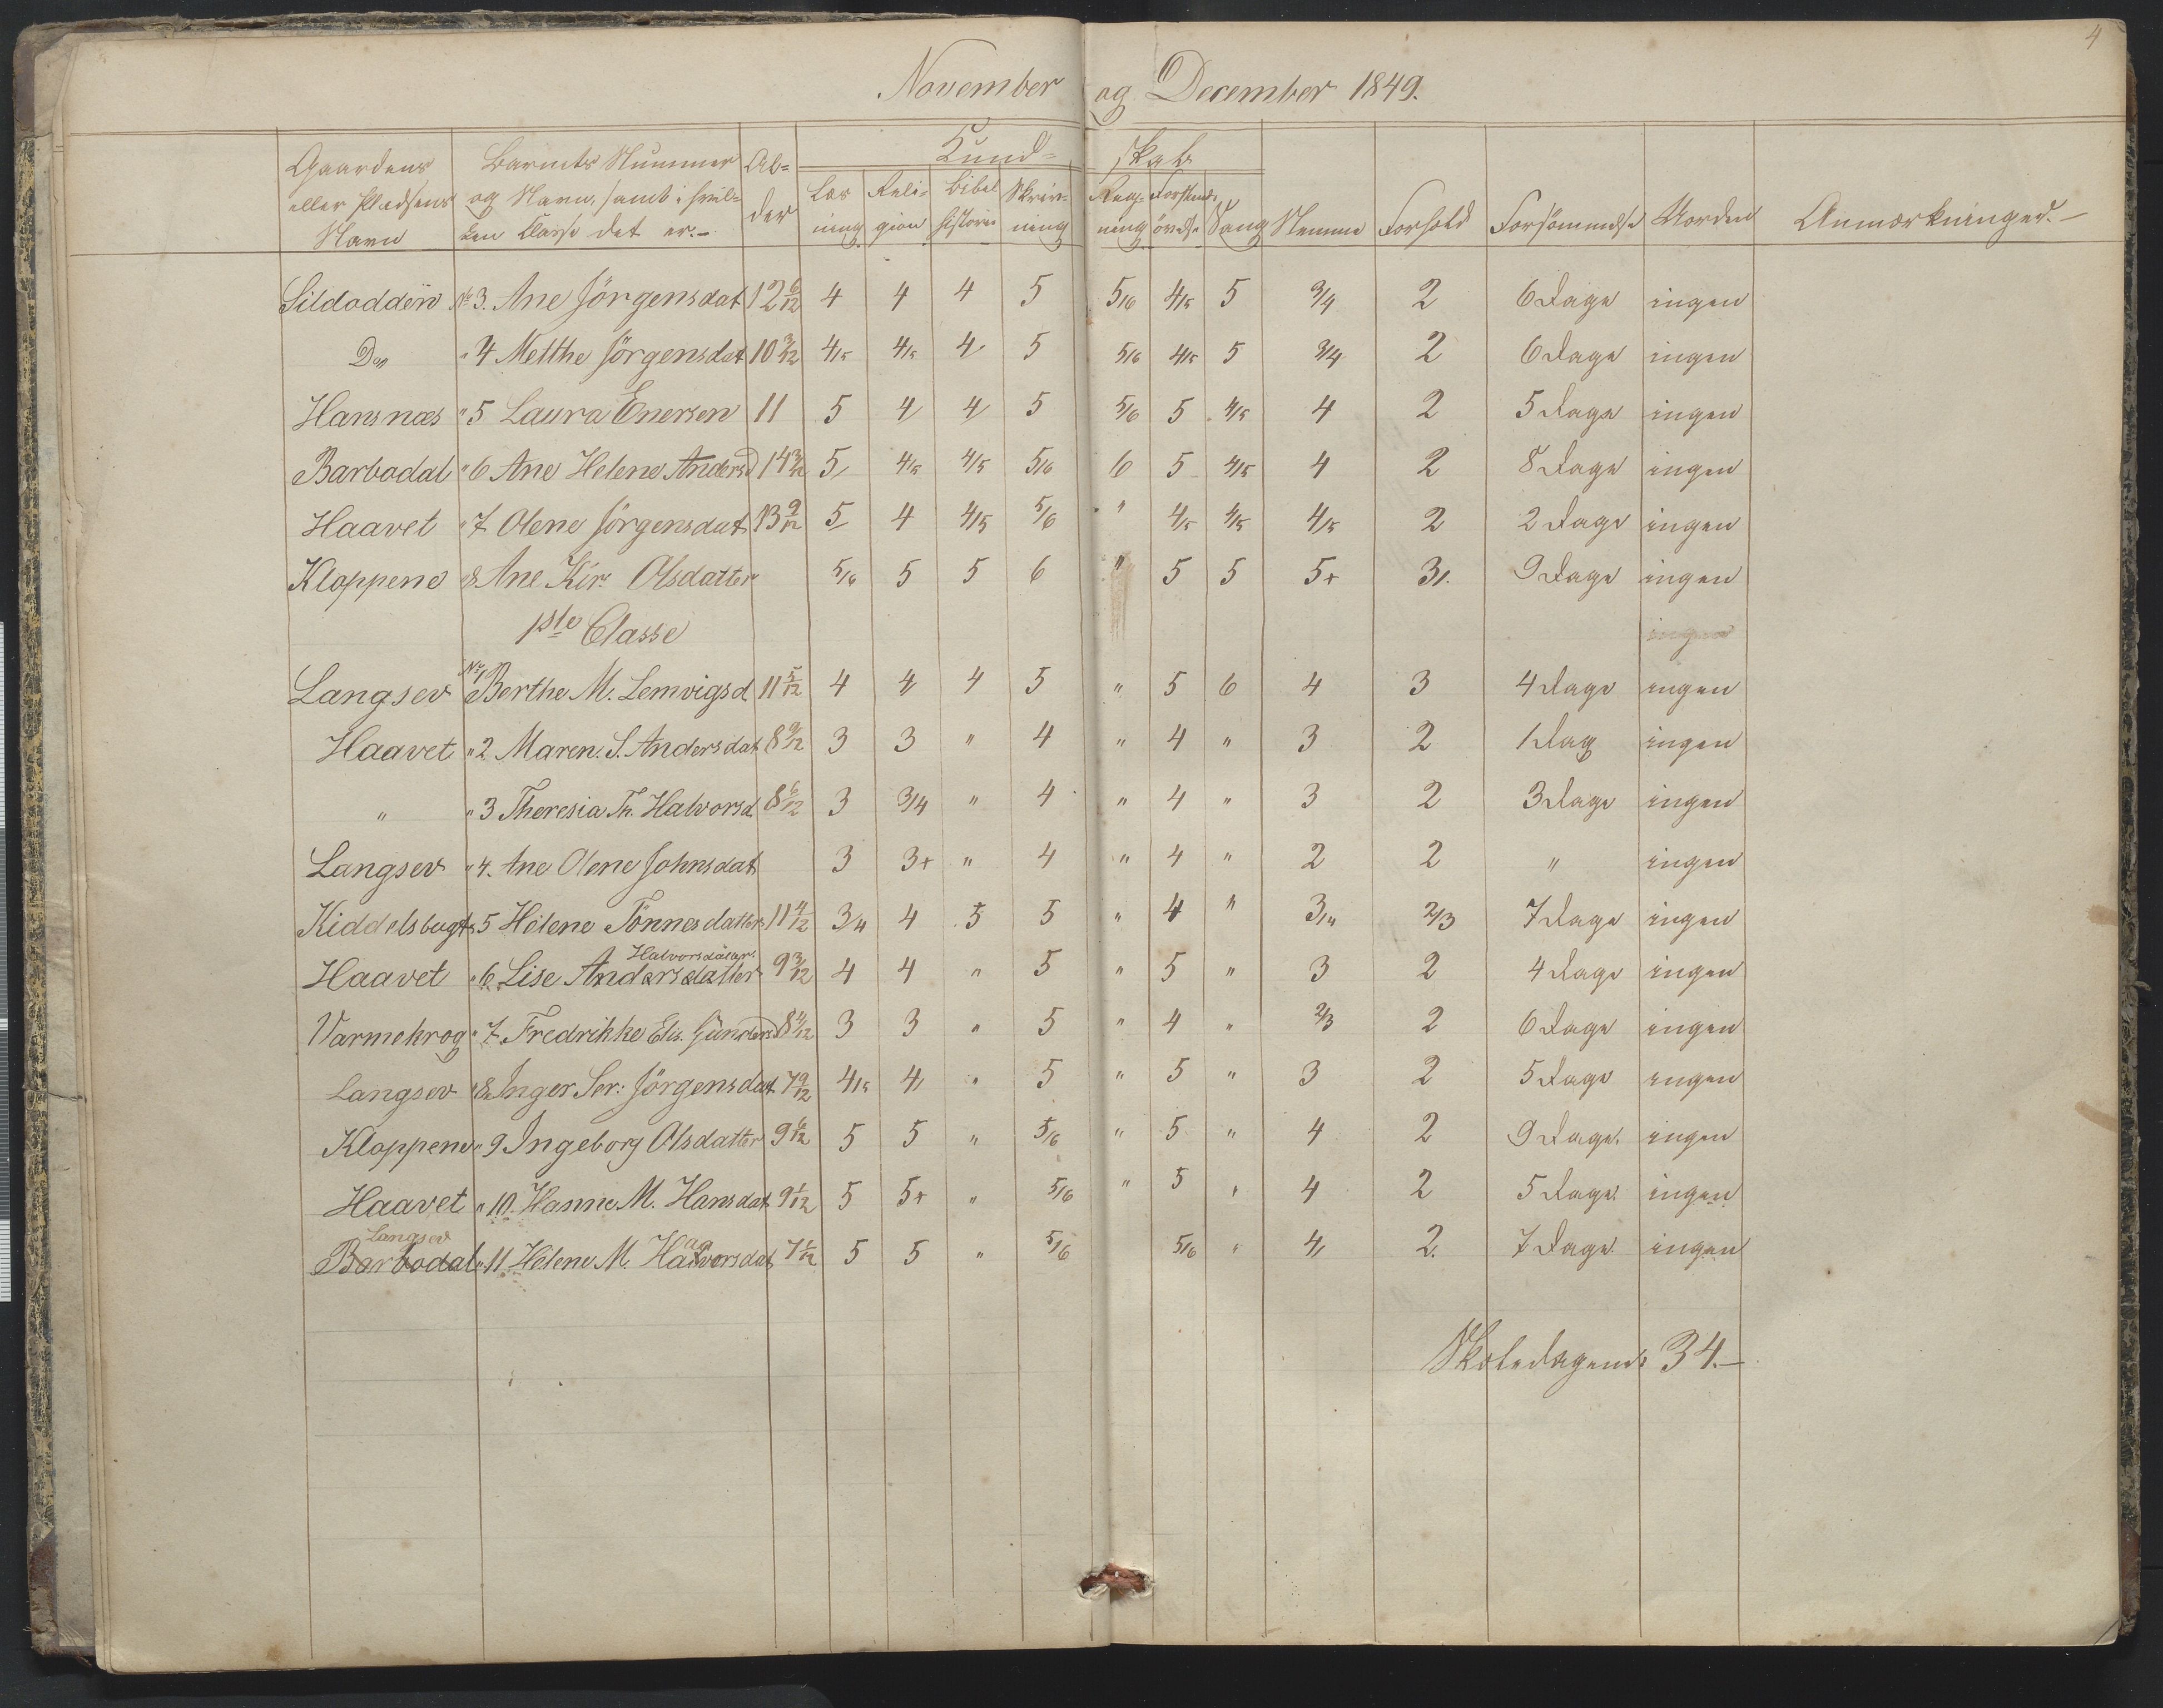 4
November og December 1849.
Gaardens eller Pladsens Navn | Barnets Nummer og Navn, samt i hvilken Classe det er.- | Alder | Kundskab: Læsning | Religion | Bibelhistorie | Skrivning | Regning | Forstandsövelse | Sang | Nemme | Forhold | Forsömmelse | Uorden | Anmærkninger.-
Sildodden No 3. Ane Jörgensdat 12 6/12 4 4 4 5 5/6 4/5 5 3/4 2 6 Dage ingen
Do " 4 Metthe Jörgensdat 10 3/12 4/5 4/5 4 5 5/6 4/5 5 3/4 2 6 Dage ingen
Hansnæs " 5 Laura Enersen 11 5 4 4 5 5/6 5 4/5 4 2 5 Dage ingen
Barbodal " 6 Ane Helene Andersd 14 3/12 5 4/5 4/5 5/6 6 5 4/5 4 2 8 Dage ingen
Haavet " 7 Olene Jörgensdat 13 9/12 5 4 4/5 5/6 " 4/5 4/5 4/5 2 2 Dage ingen
Kloppene 8 Ane Kir. Olsdatter 5/6 5 5 6 " 5 5 5+ 3 9 Dage ingen
1ste Classe ingen
Langsev No 1 Berthe M. Lemvigsd. 11 5/12 4 4 4 5 " 5 6 4 3 4 Dage ingen
Haavet " 2 Maren. S. Andersdat 8 9/12 3 3 " 4 " 4 " 3 2 1 Dag ingen
" " 3 Theresia Th. Halvorsd. 8 6/12 3 3/4 " 4 " 4 " 3 2 3 Dage ingen
Langsev " 4. Ane Olene Johnsdat 3 3+ " 4 " 4 " 2 2 " ingen
Kiddelsbugt " 5 Helene Tönnesdatter 11 4/12 3/4 4 5 5 " 4 " 3/4 2/3 7 Dage ingen
Halvorsdatter.
Haavet " 6 Lise Andersdatter 9 3/12 4 4 " 5 " 5 " 3 2 4 Dage ingen
Varmekrog " 7. Fredrikke Elis. Gundersd 8 4/12 3 3 " 5 " 4 " 2/3 2 6 Dage ingen
Langsev " 8 Inger Ser: Jörgensdat 7 9/12 4/5 4 " 5 " 5 " 3 2 5 Dage ingen
Kloppene " 9 Ingeborg Olsdatter 9 6/12 5 5 " 5/6 " 5 " 4 2 9 Dage. ingen
Haavet " 10. Hanne M. Hansdat 9 1/12 5 5+ " 5/6 " 5 " 4 2 5 Dage. ingen
Langsev
Barbodal " 11 Helene M. Halvorsdat 7 1/12 5 5 " 5/6 5/6 " 4 2. 7 Dage. ingen
Skoledagene: 34.-